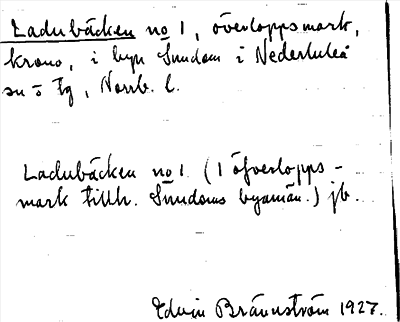 Ladubäcken no 1, överloppsmark,
krono, i byn Sundom i Nederluleå
sn o tg, Norrb. l.
Ladubäcken no 1. (1 öfverlopps-
mark tillh. Sundoms byamän.) jb.
Edvin Brännström 1927.